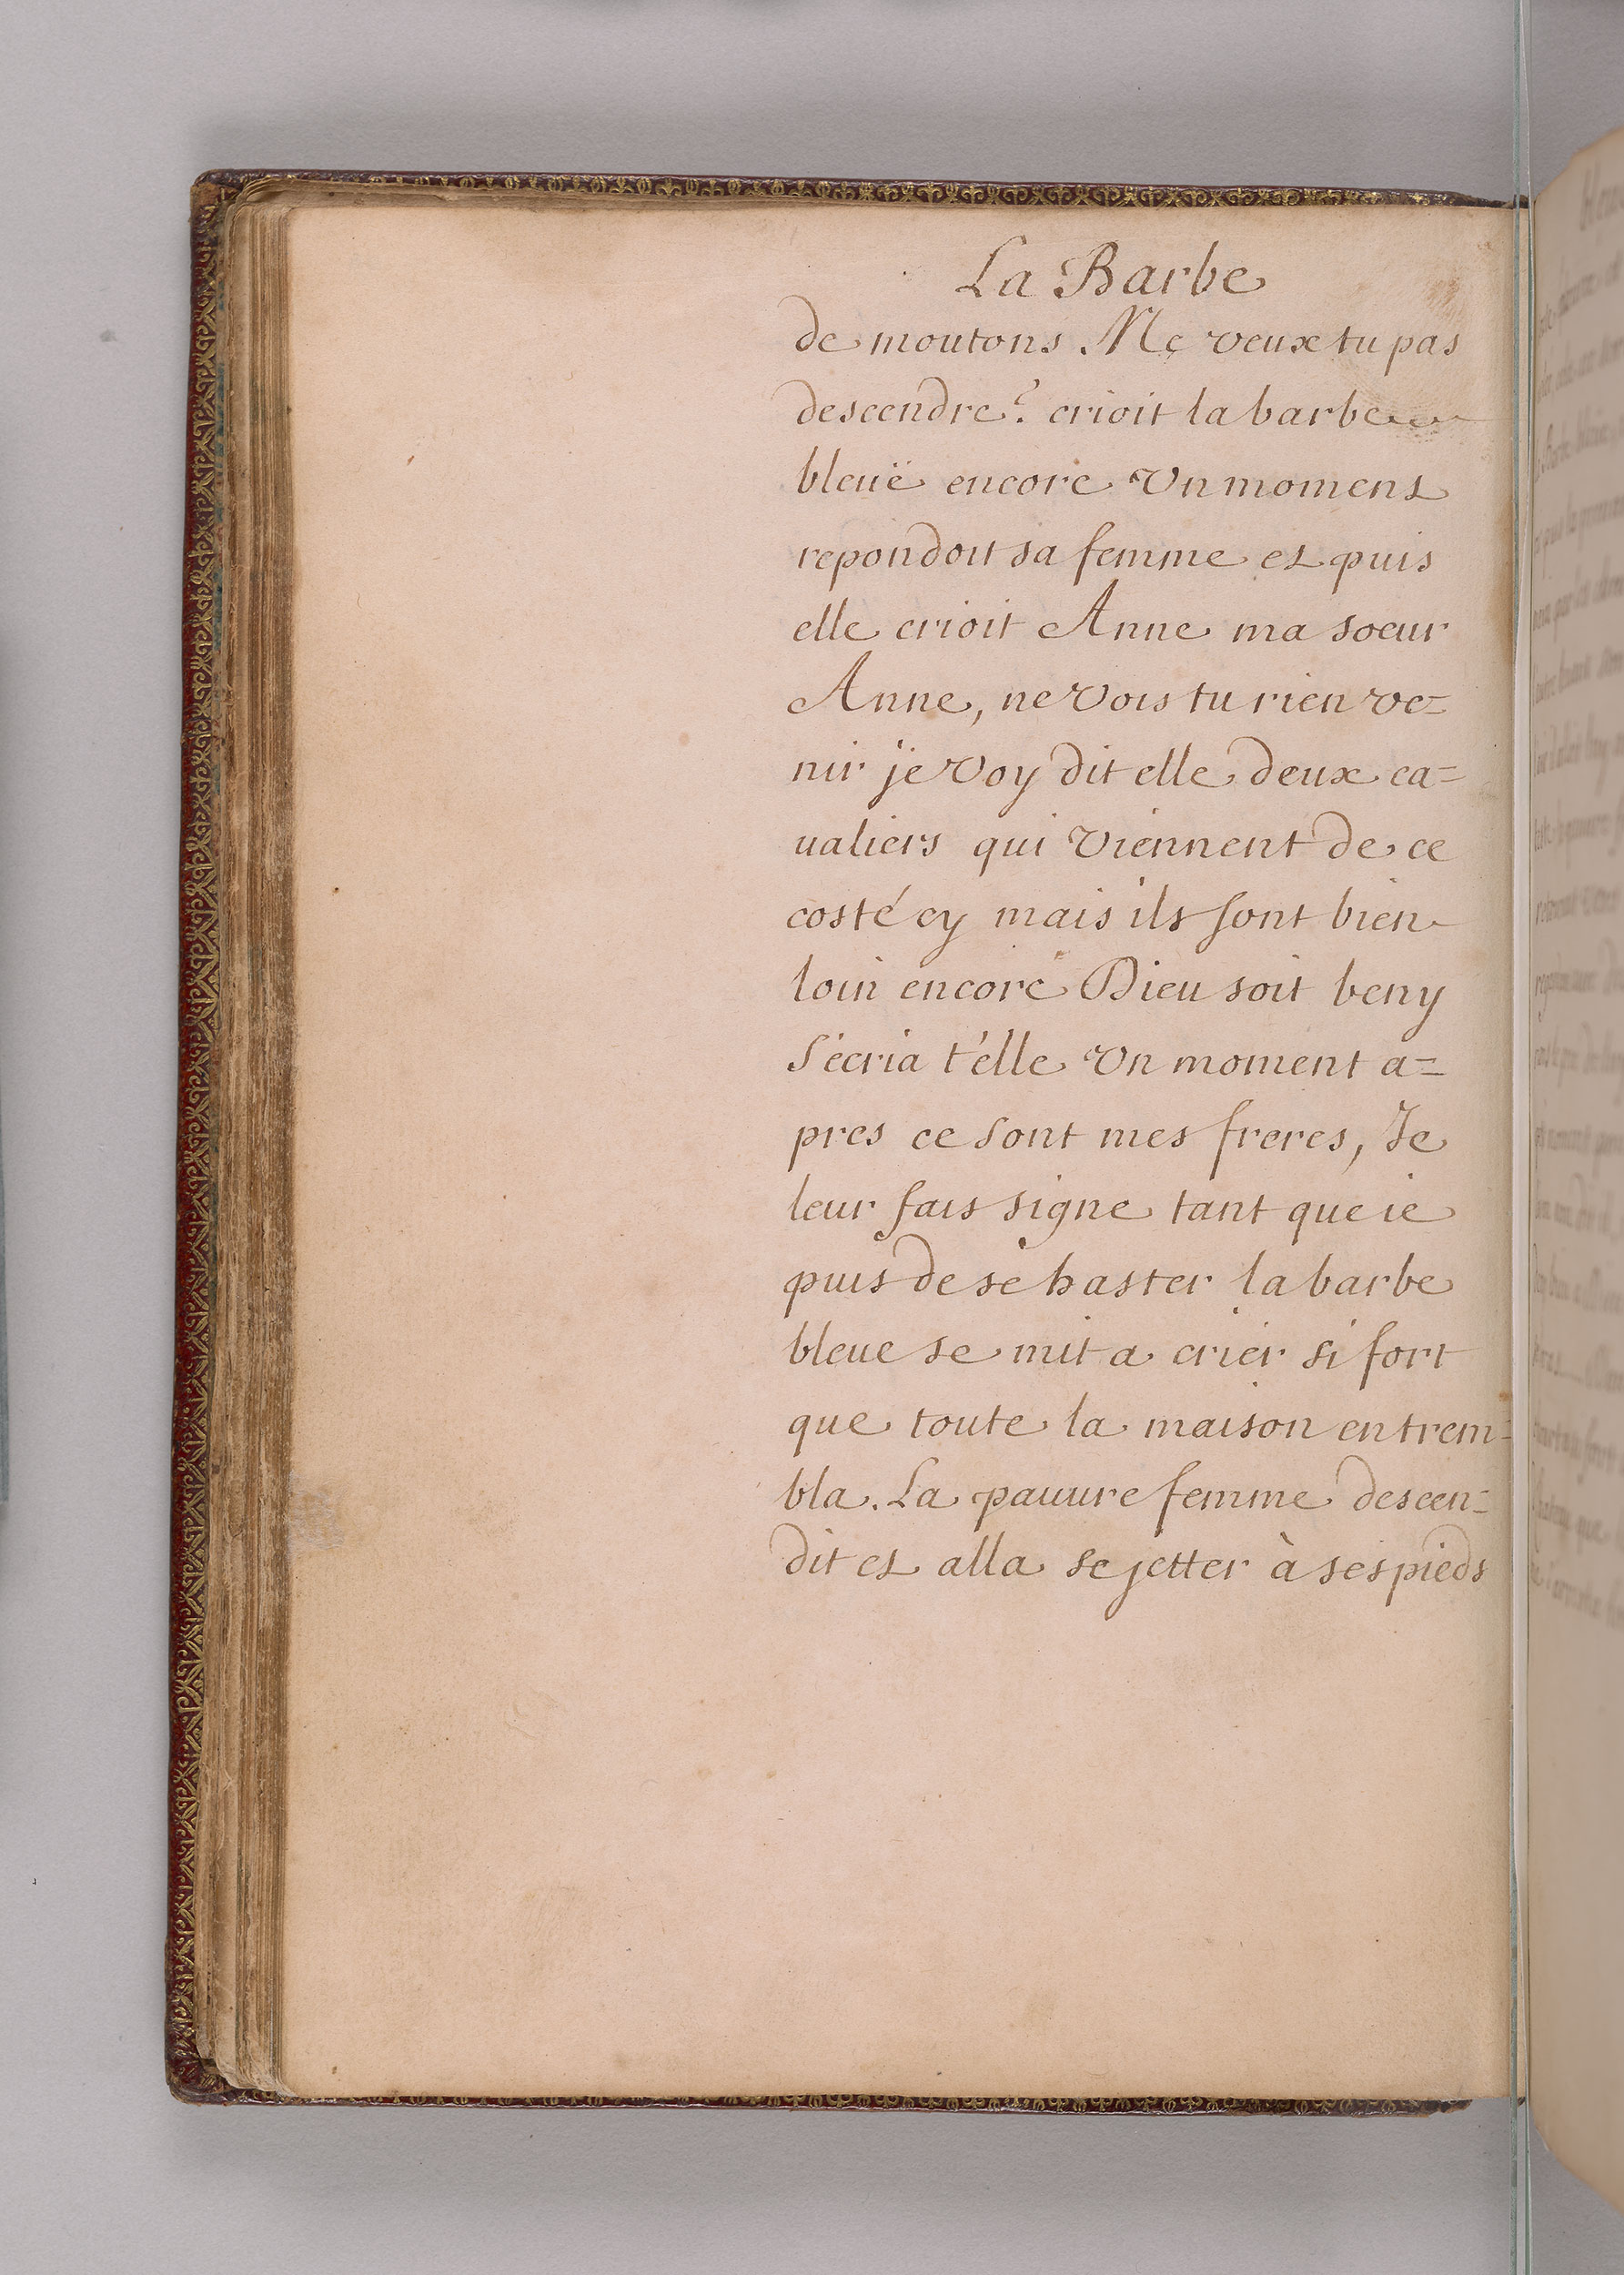 La Barbe
de moutons. Ne veux tu pas
descendre? crioit la barbe
bleüe encore Un moment
repondoit sa femme et puis
elle crioit Anne ma soeur
Anne, ne vois tu rien ve=
nir je voy dit elle deux ca=
ualiers qui viennent de ce
costé cy mais ils sont bien
loin encore Dieu soit beny
s'écria t'elle Un moment a=
pres ce sont mes freres, Je
leur fais signe tant que ie
puis de se haster la barbe
bleue se mit a crier si fort
que toute la maison en trem=
bla. La pauure femme descen=
dit et alla se jetter à ses pieds